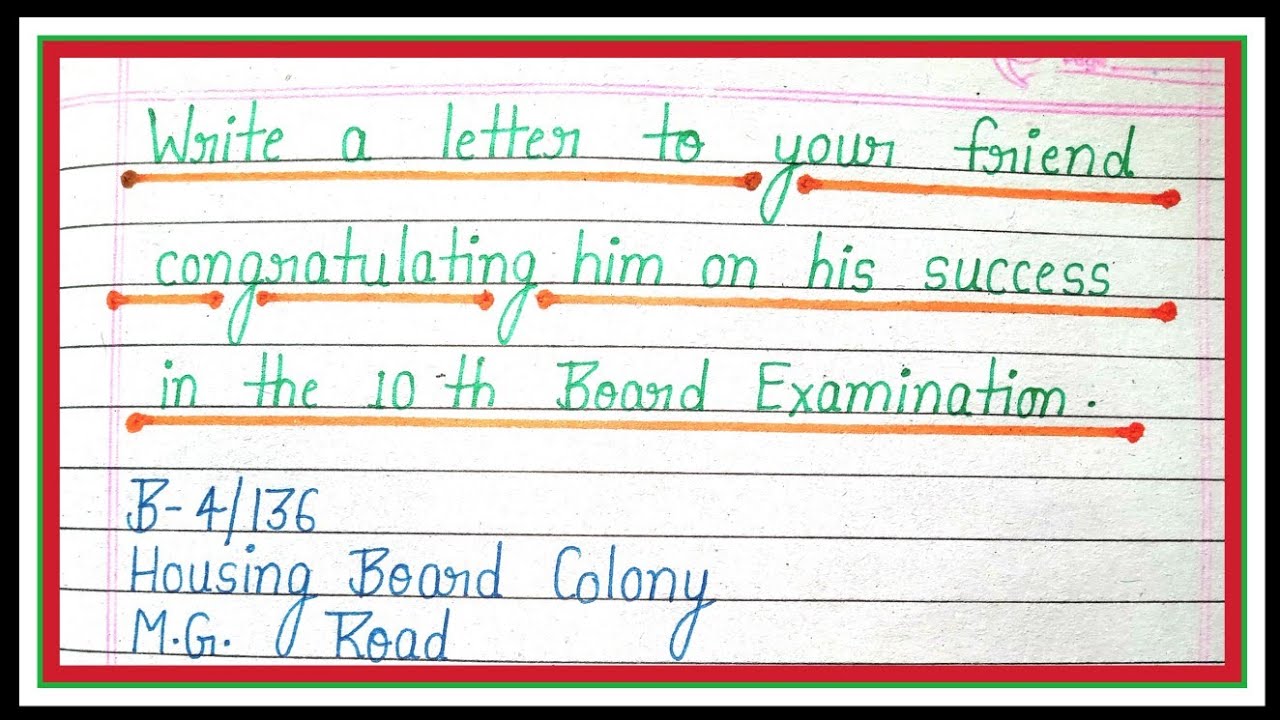 Write a letter to your friend
congratulating him on his success
in the 10th Board Examination.
B-4/136
Housing Board Colony
M.G. Road